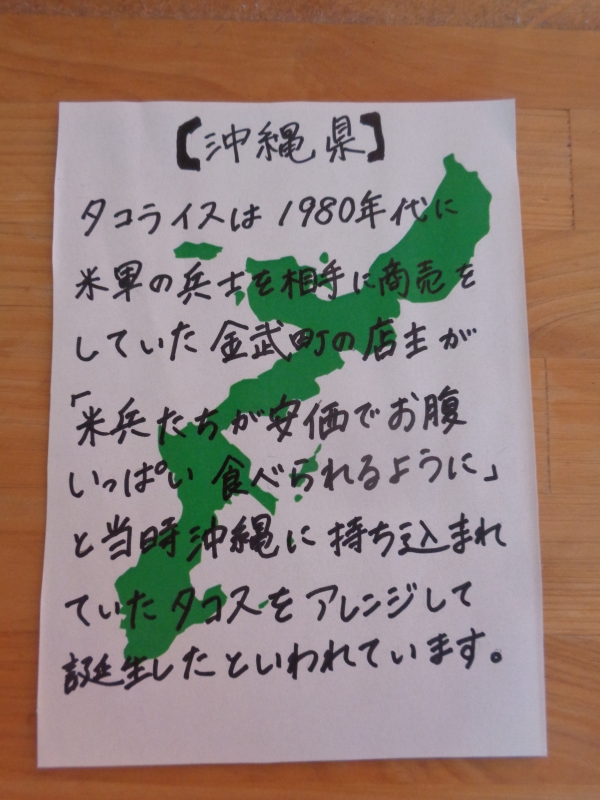 【沖縄県】
タコライスは1980年代に
米軍の兵士を相手に商売を
していた金武町の店主が
「米兵たちが安価でお腹
いっぱい食べられるように」
と当時沖縄に持ち込まれ
ていたタコスをアレンジして
誕生したといわれています。